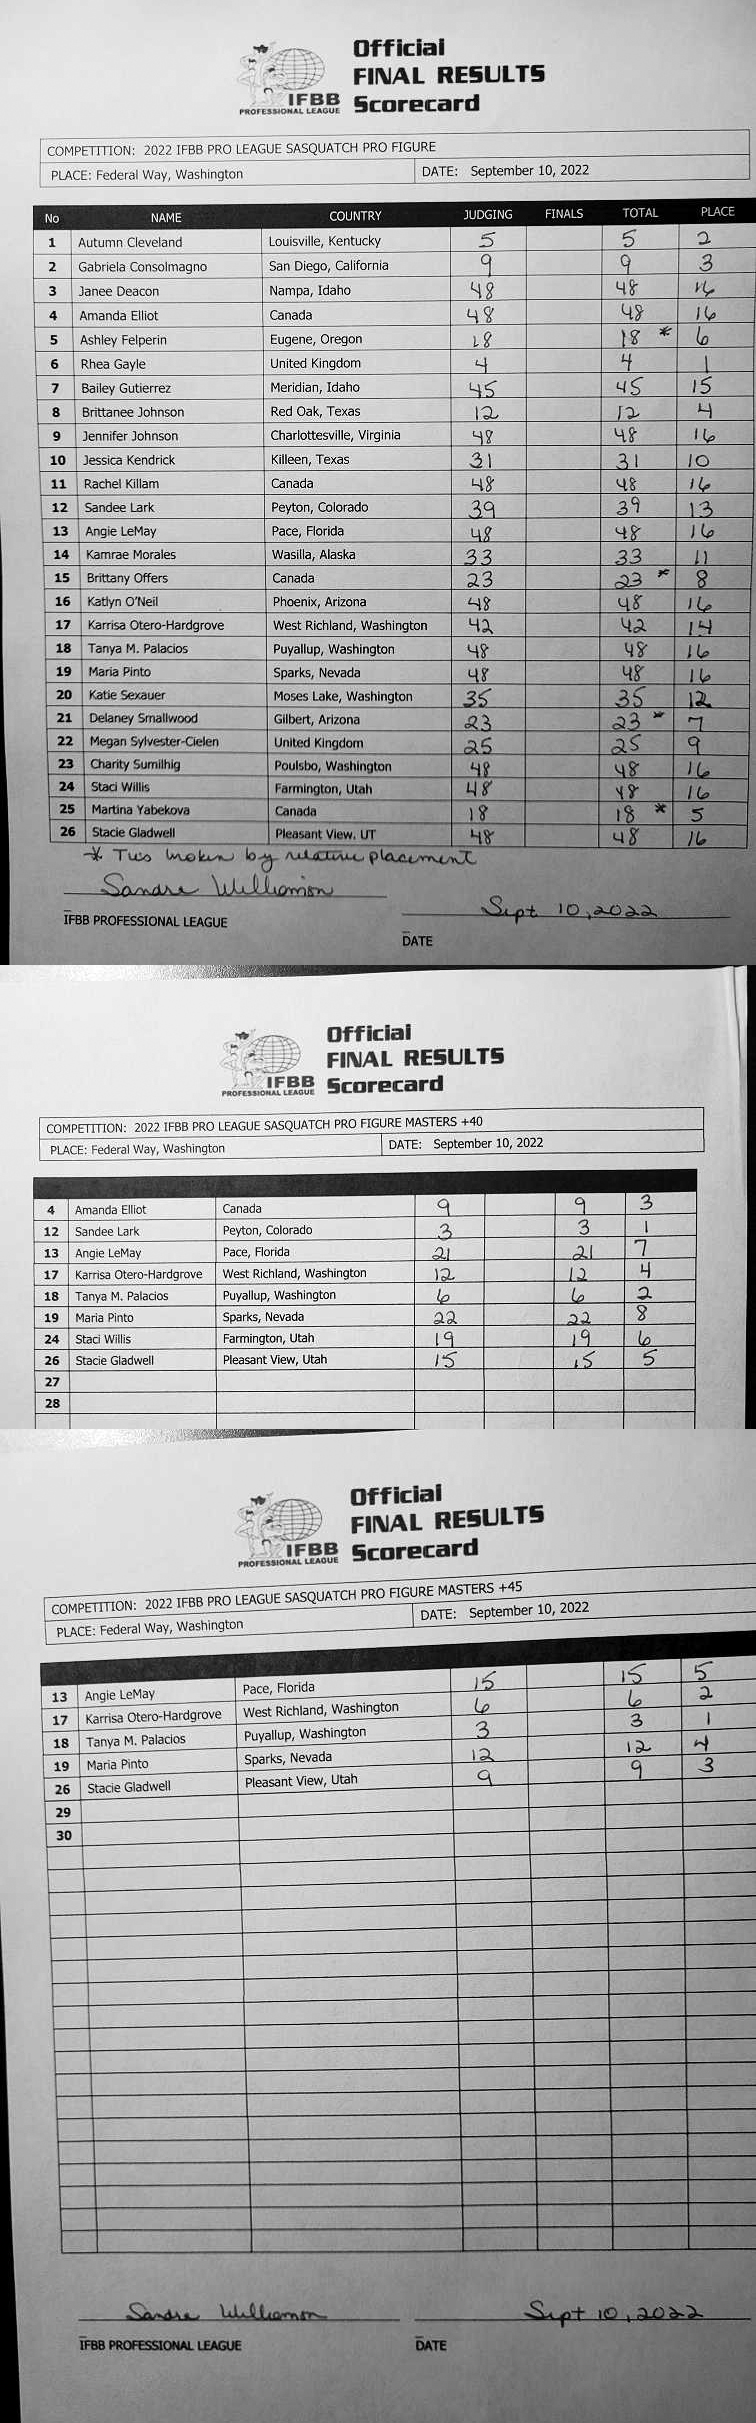 Official
FINAL RESULTS
IFBB Scorecard
PROFESSIONAL LEAGUE
COMPETITION: 2022 IFBB PRO LEAGUE SASQUATCH PRO FIGURE
PLACE: Federal Way, Washington DATE: September 10, 2022
No NAME COUNTRY JUDGING FINALS TOTAL PLACE
1 Autumn Cleveland Louisville, Kentucky 5 5 2
2 Gabriela Consolmagno San Diego, California 9 9 3
3 Janee Deacon Nampa, Idaho 48 48 16
4 Amanda Elliot Canada 48 48 16
5 Ashley Felperin Eugene, Oregon 18 18 * 6
6 Rhea Gayle United Kingdom 4 4 1
7 Bailey Gutierrez Meridian, Idaho 45 45 15
8 Brittanee Johnson Red Oak, Texas 12 12 4
9 Jennifer Johnson Charlottesville, Virginia 48 48 16
10 Jessica Kendrick Killeen, Texas 31 31 10
11 Rachel Killam Canada 48 48 16
12 Sandee Lark Peyton, Colorado 39 39 13
13 Angie LeMay Pace, Florida 48 48 16
14 Kamrae Morales Wasilla, Alaska 33 33 11
15 Brittany Offers Canada 23 23 * 8
16 Katlyn O'Neil Phoenix, Arizona 48 48 16
17 Karrisa Otero-Hardgrove West Richland, Washington 42 42 14
18 Tanya M. Palacios Puyallup, Washington 48 48 16
19 Maria Pinto Sparks, Nevada 48 48 16
20 Katie Sexauer Moses Lake, Washington 35 35 12
21 Delaney Smallwood Gilbert, Arizona 23 23 * 7
22 Megan Sylvester-Cielen United Kingdom 25 25 9
23 Charity Sumilhig Poulsbo, Washington 48 48 16
24 Staci Willis Farmington, Utah 48 48 16
25 Martina Yabekova Canada 18 18 * 5
26 Stacie Gladwell Pleasant View. UT 48 48 16
* Ties broken by relative placement
Sandra Williamson Sept 10, 2022
IFBB PROFESSIONAL LEAGUE
DATE
Official
FINAL RESULTS
IFBB Scorecard
PROFESSIONAL LEAGUE
COMPETITION: 2022 IFBB PRO LEAGUE SASQUATCH PRO FIGURE MASTERS +40
PLACE: Federal Way, Washington DATE: September 10, 2022
4 Amanda Elliot Canada 9 9 3
12 Sandee Lark Peyton, Colorado 3 3 1
13 Angie LeMay Pace, Florida 21 21 7
17 Karrisa Otero-Hardgrove West Richland, Washington 12 12 4
18 Tanya M. Palacios Puyallup, Washington 6 6 2
19 Maria Pinto Sparks, Nevada 22 22 8
24 Staci Willis Farmington, Utah 19 19 6
26 Stacie Gladwell Pleasant View, Utah 15 15 5
27
28
Official
FINAL RESULTS
IFBB Scorecard
PROFESSIONAL LEAGUE
COMPETITION: 2022 IFBB PRO LEAGUE SASQUATCH PRO FIGURE MASTERS +45
PLACE: Federal Way, Washington DATE: September 10, 2022
13 Angie LeMay Pace, Florida 15 15 5
17 Karrisa Otero-Hardgrove West Richland, Washington 6 6 2
18 Tanya M. Palacios Puyallup, Washington 3 3 1
19 Maria Pinto Sparks, Nevada 12 12 4
26 Stacie Gladwell Pleasant View, Utah 9 9 3
29
30
Sandra Williamson Sept 10, 2022
IFBB PROFESSIONAL LEAGUE DATE